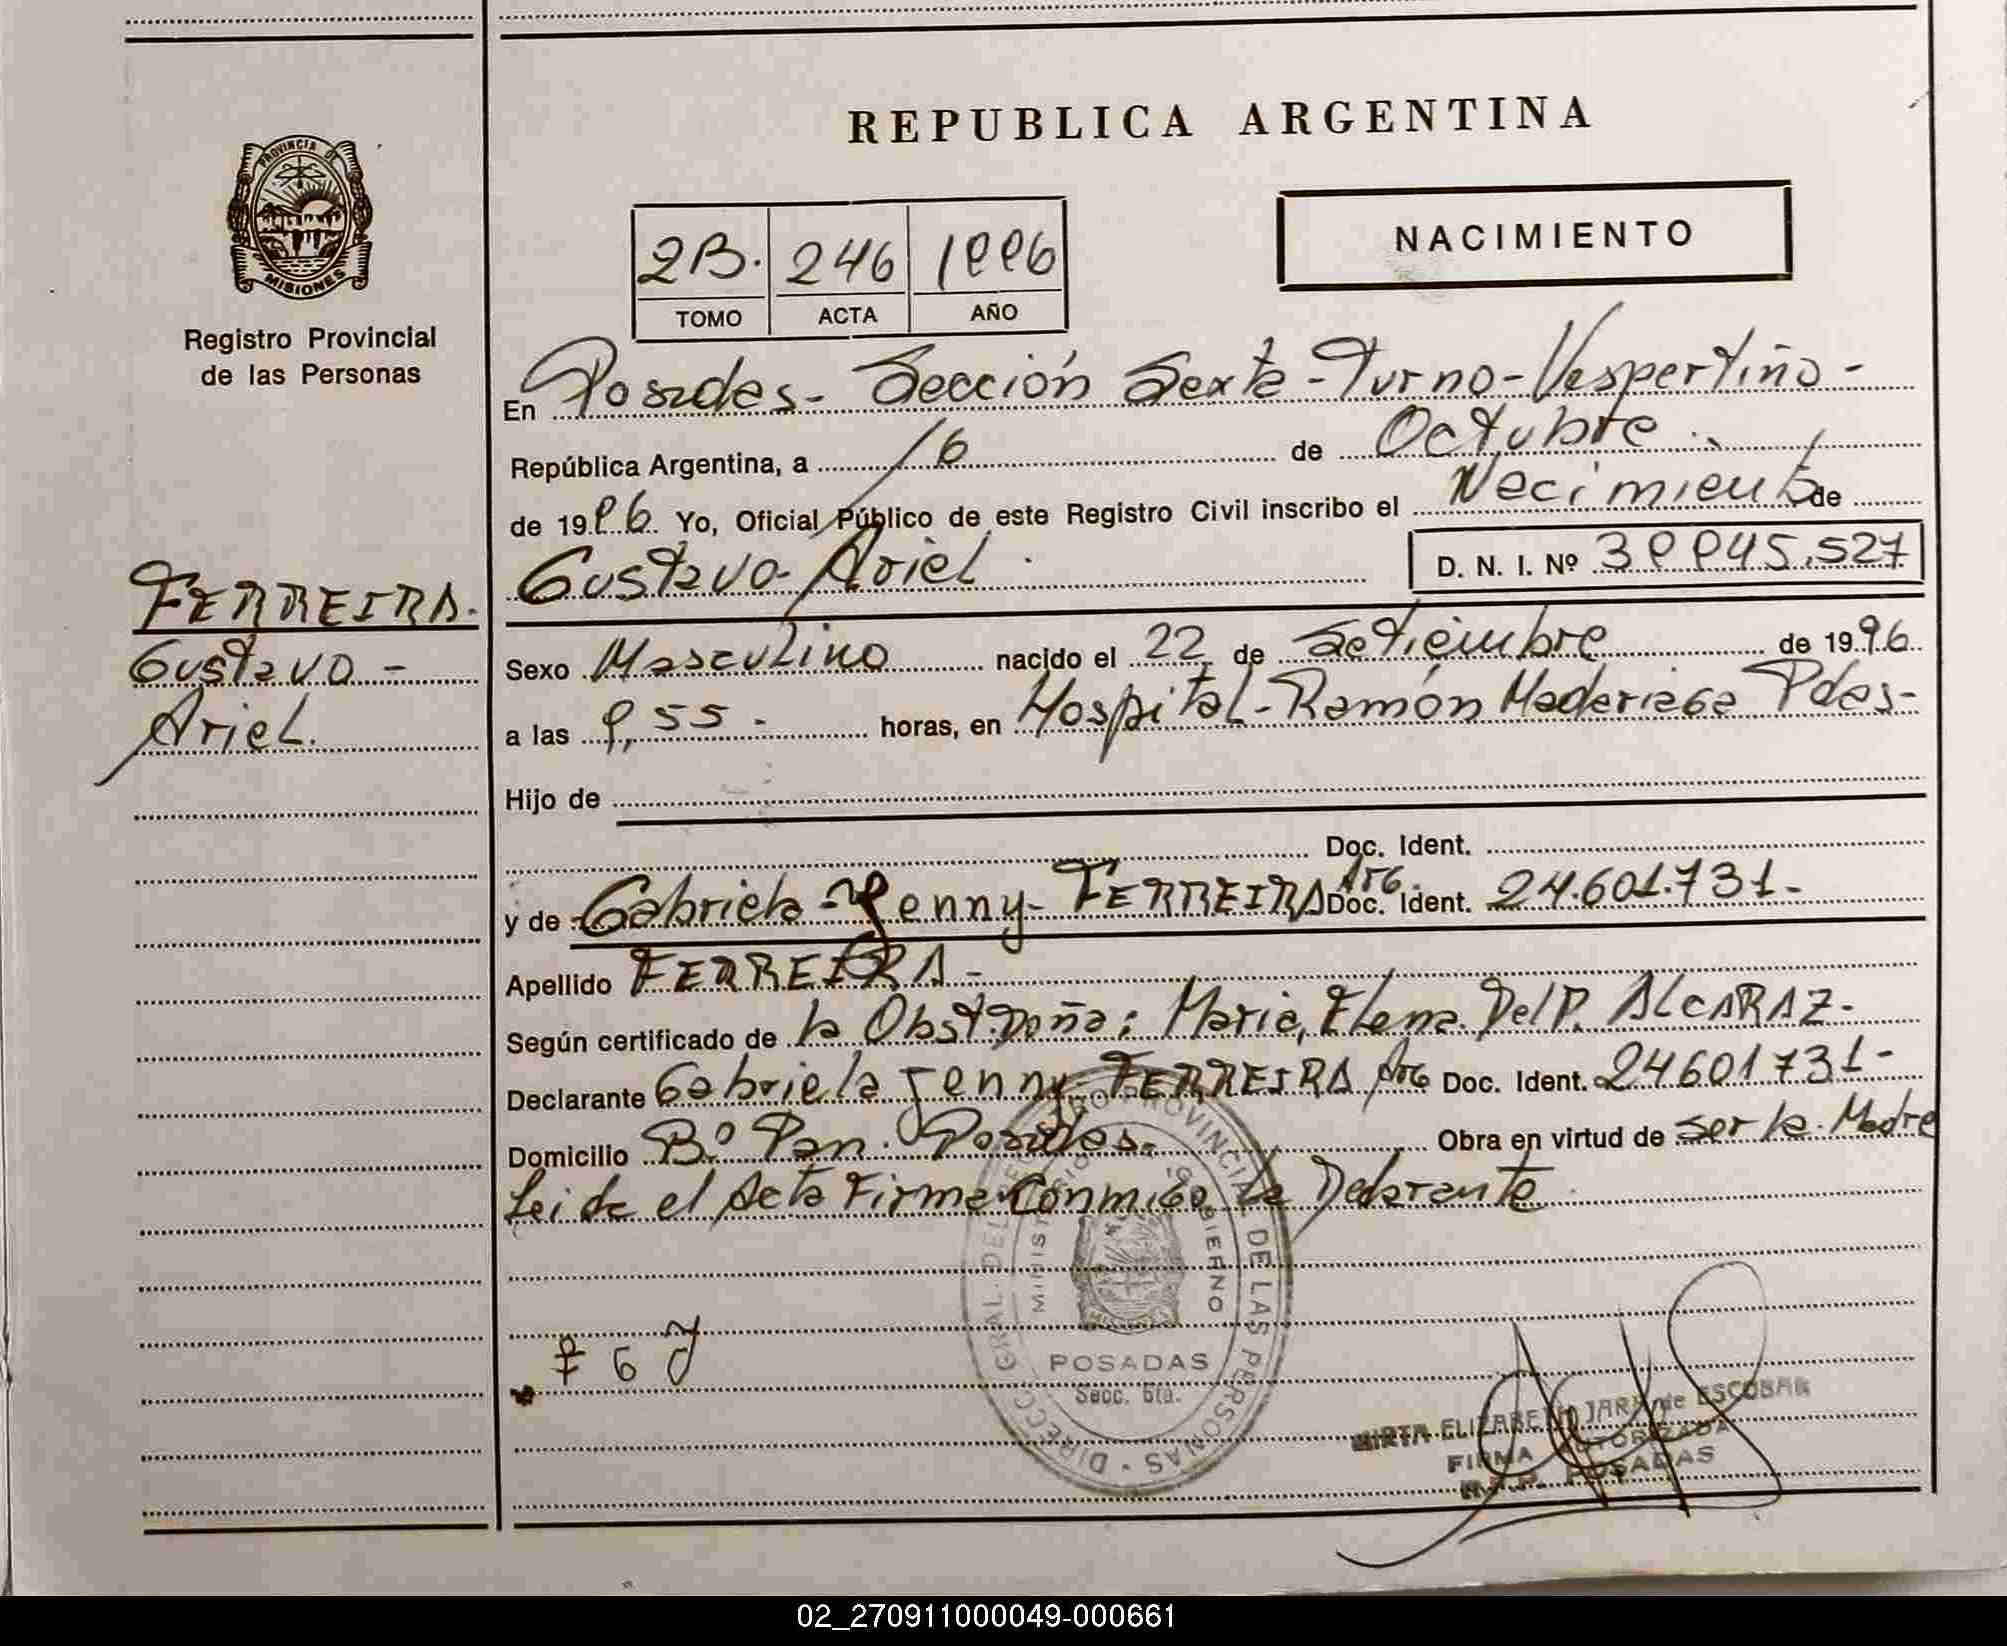 REPUBLICA ARGENTINA
PROVINCIA DE
MISIONES
Registro Provincial
de las Personas
2B. 246 1996
TOMO ACTA AÑO
NACIMIENTO
En Posadas- Sección Sexta-Turno-Vespertino-
República Argentina, a 16 de Octubre
de 1996 Yo, Oficial Público de este Registro Civil inscribo el Nacimiento de
Gustavo-Ariel D. N. I. Nº 39945.527
FERREIRA.
Gustavo-
Ariel.
Sexo Masculino nacido el 22 de Setiembre de 1996
a las 9,55- horas, en Hospital-Ramón Madariaga Pdas-
Hijo de
Doc. Ident.
y de Gabriela-Yenny-FERREIRA Arg. Doc. Ident. 24.601.731-
Apellido FERREIRA-
Según certificado de la Obst. Doña: Maria, Elena. Del P. ALCARAZ-
Declarante Gabriela Jenny FERREIRA Arg Doc. Ident. 24601731-
Domicilio Bº Pan. Posadas. Obra en virtud de ser la Madre
Leida el Acta Firma Conmigo la Declarante
DIRECC. GRAL. DEL REGISTRO PROVINCIAL DE LAS PERSONAS
MINISTERIO DE GOBIERNO
MISIONES
POSADAS
Secc. 6ta.
F G J
MIRTA ELIZABETH JARA de ESCOBAR
FIRMA AUTORIZADA
R.P.P. POSADAS
02_270911000049-000661